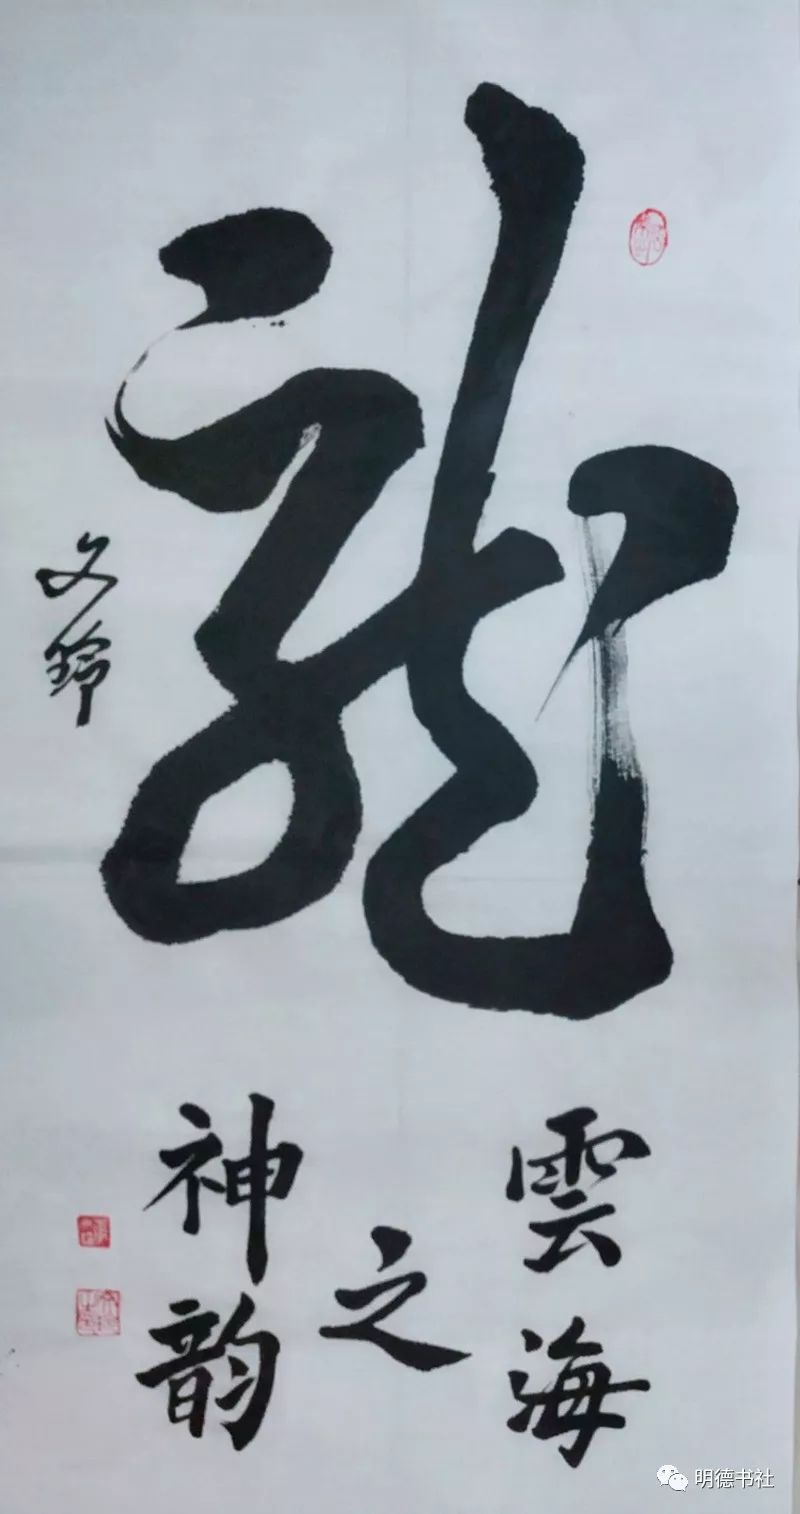 龍
雲海
之
神韵
文铃
明德书社